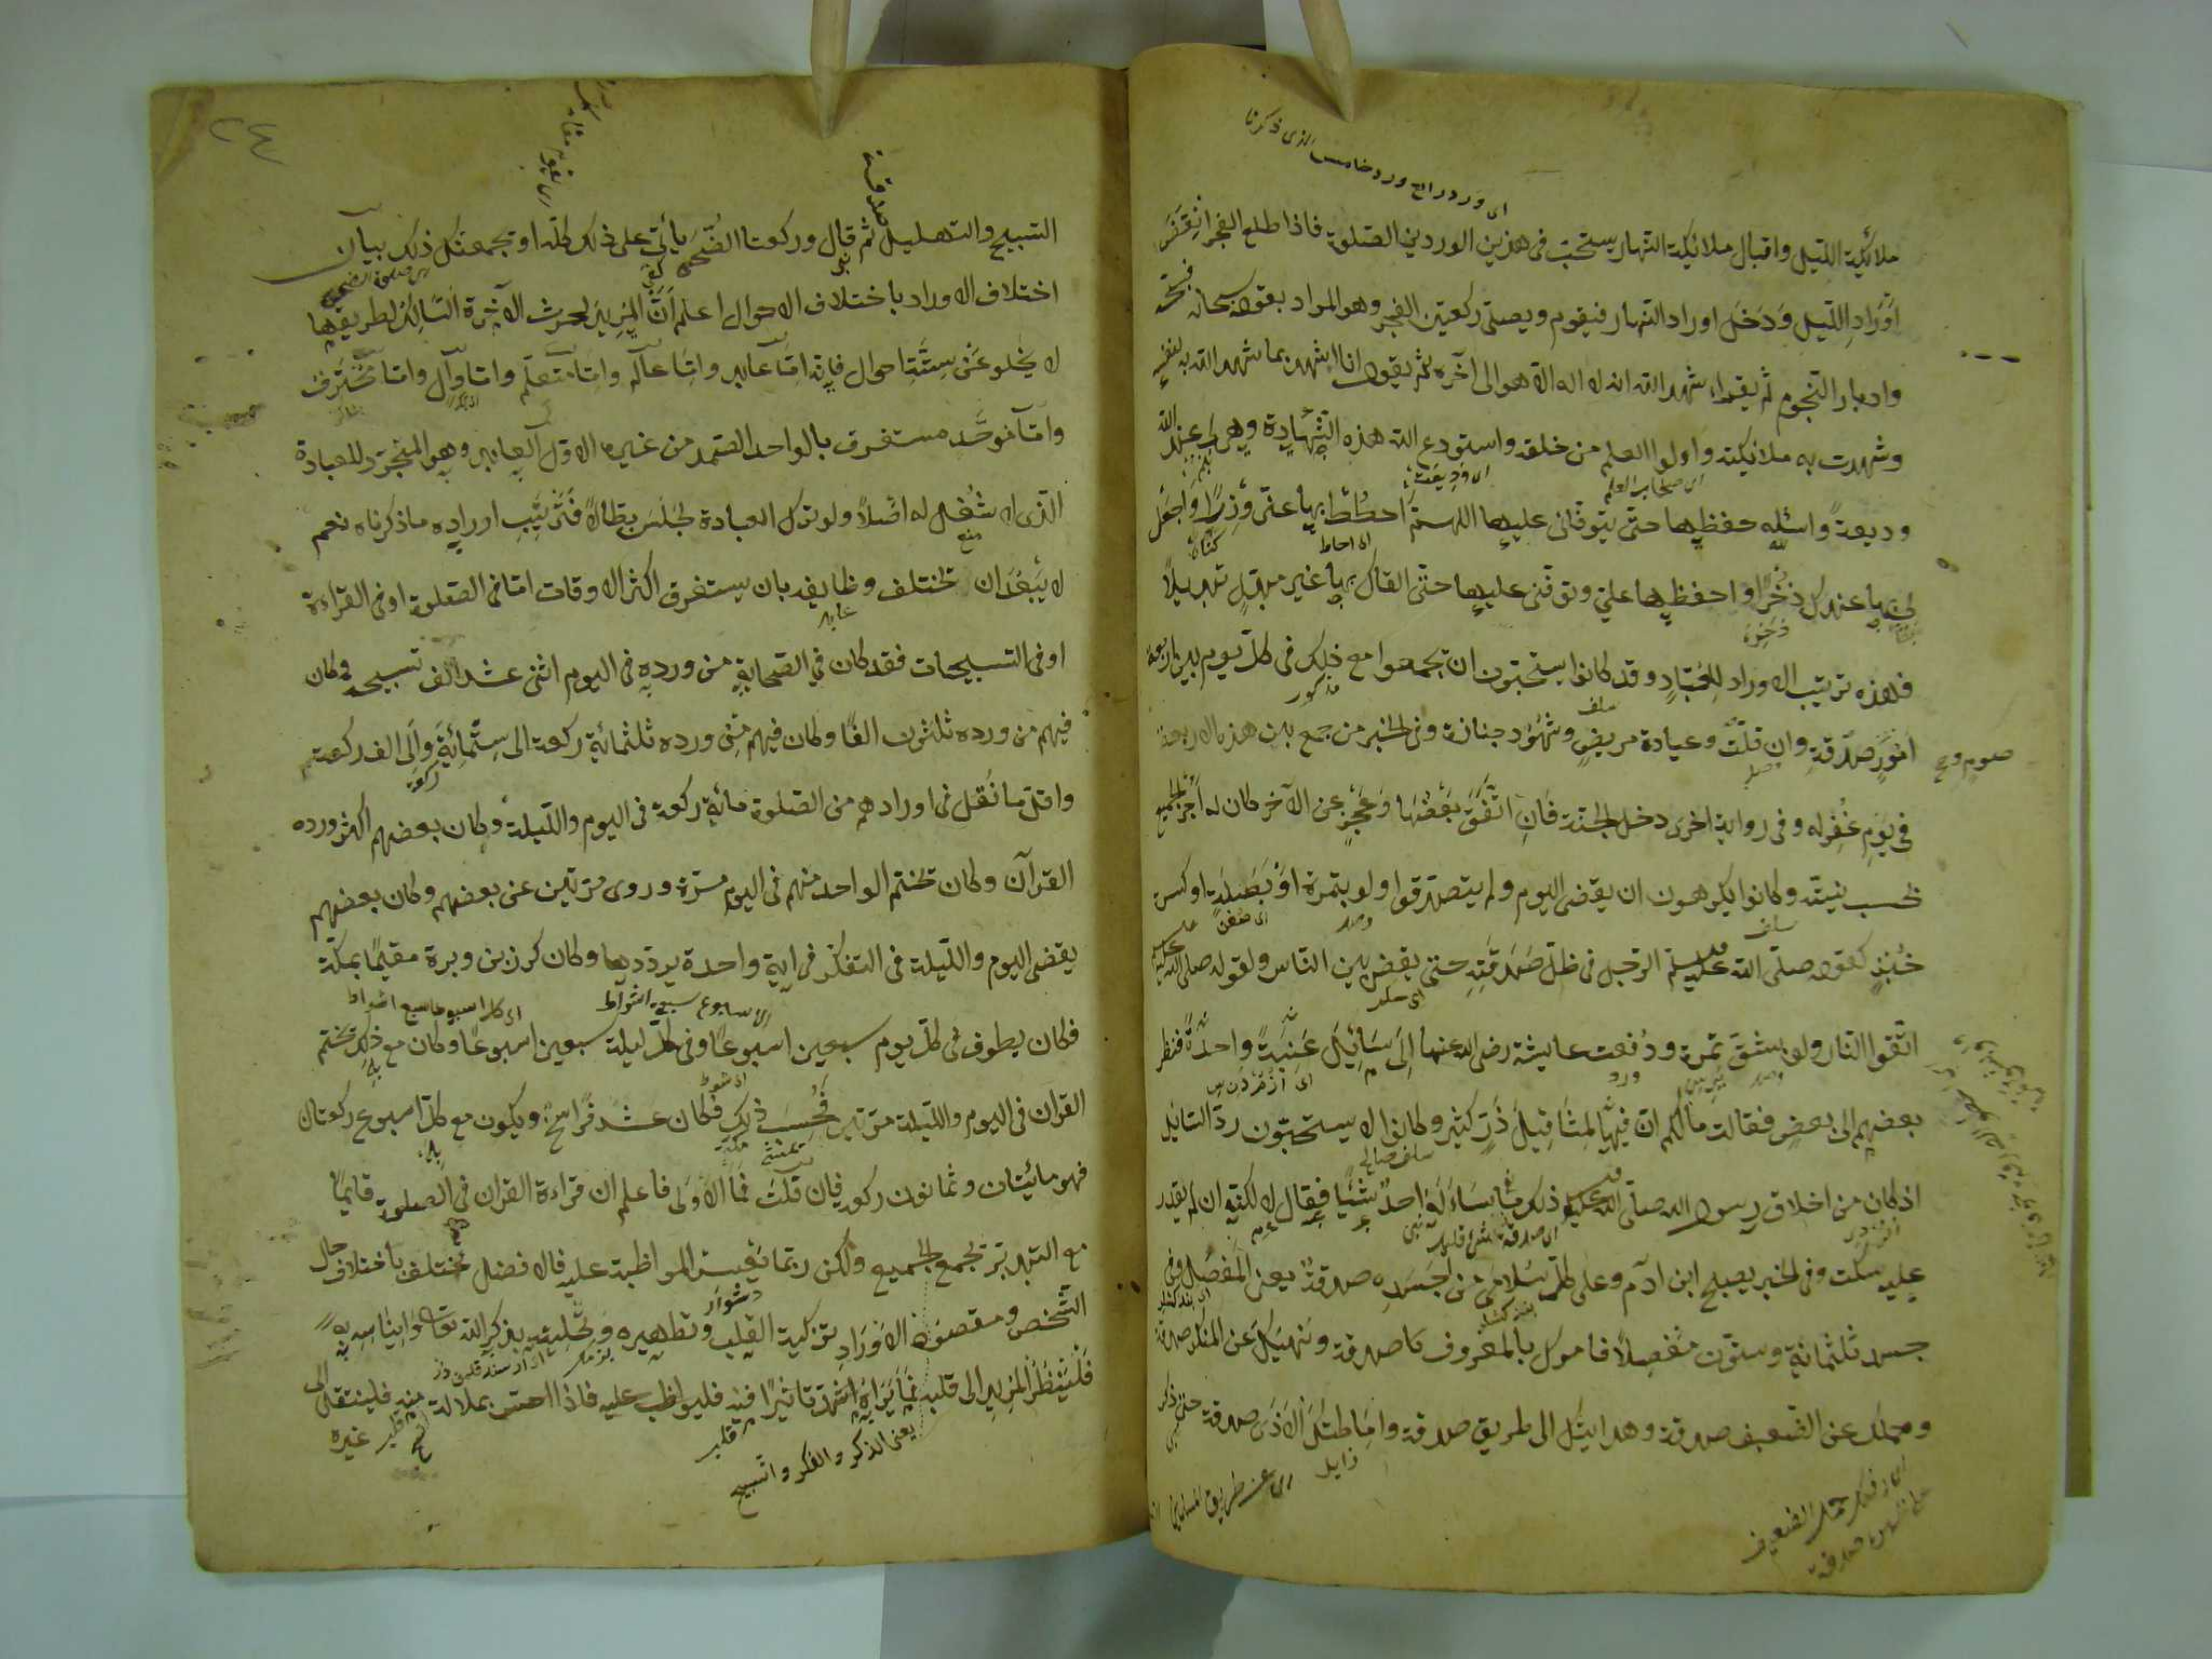 اى ورد رابع ورد خامس الذى ذكرنا
ملائكة الليل واقبال ملائكة النهار يستحب فى هذين الوردين الصلوة فاذا طلع الفجر انقضت
اوراد الليل ودخل اوراد النهار فيقوم ويصلى ركعتين الفجر وهو المراد بقوله سبحانه فسبحه
وادبار النجوم ثم يقراء شهد الله انه لا اله الا هو الى آخره ثم يقول انا اشهد بما شهد الله به لنفسه
وشهدت به ملائكته واولوا العلم من خلقه واستودع الله هذه الشهادة وهى لى عند الله
اى وديعت
وديعة واسئله حفظها حتى يتوفانى عليها اللهم احطط بها عنى وزرا واجعل
لى بها عندك ذخرا واحفظها على وتوفنى عليها حتى القاك بها غير مبدل تبديلا
فهذه ترتيب الاوراد للعباد وقد كانوا يستحبون ان يجمعوا مع ذلك فى كل يوم بين اربعة
امور صدقة وان قلت وعيادة مريض وشهود جنازة وفى الخبر من جمع بين هذه الاربعة
صوم و
فى يوم غفر له وفى رواية اخرى دخل الجنة فان اتفق بعضها وعجز عن الآخر كان له اجر الجميع
بحسب نيته وكانوا يكرهون ان يقضى اليوم ولم يتصدقوا ولو بتمرة او بصلة او كسرة
خبز كقوله صلى الله عليه وسلم الرجل فى ظل صدقته حتى يقضى بين الناس ولقوله صلى الله عليه
اتقوا النار ولو بشق تمرة ودفعت عايشة رضى الله عنها الى سائل عنبة واحدة فنظر
بعضهم الى بعض فقالت مالكم ان فيها لمثاقيل ذر كثير وكانوا لا يستحبون رد السائل
اذ كان من اخلاق رسول الله صلى الله عليه ذلك ما ساءله احد شيئا فقال لا لكنه ان لم يقدر
عليه سكت وفى الخبر يصبح ابن ادم وعلى كل سلامى من جسده صدقة يعنى المفصل وفى
جسده ثلثمائة وستون مفصلا فامرك بالمعروف صدقة ونهيك عن المنكر صدقة
وحملك عن الضعيف صدقة وهدايتك الى طريق صدقة واماطتك الاذى صدقة حتى ذكر
زايل
اى عن طريق المسلمين
٢٤
صدقة
التسبيح والتهليل ثم قال وركعتا الضحى يأتى على ذلك كله او تجمعن لك ذلك بيان
اختلاف الاوراد باختلاف الاحوال اعلم ان المريد لحرث الآخرة السالك لطريقها
لا يخلو عن ستة احوال فانه اما عابد واما عالم واما متعلم واما وال واما محترف
واما موحد مستغرق بالواحد الصمد من غيره الاول العابد وهو المتجرد للعبادة
الذى لا شغل له اصلا ولو ترك العبادة لجلس بطالا فترتيب اوراده ما ذكرناه نعم
لا يبعد ان تختلف وظايفه بان يستغرق اكثر الاوقات اما فى الصلوة او فى القراءة
او فى التسبيحات فقد كان فى الصحابة من ورده فى اليوم اثنى عشر الف تسبيحة وكان
فيهم من ورده ثلثون الفا وكان فيهم من ورده ثلثمائة ركعة الى ستمائة والى الف ركعة
واقل ما نقل فى اورادهم من الصلوة مائة ركعة فى اليوم والليلة وكان بعضهم اكثر ورده
القرآن وكان يختم الواحد منهم فى اليوم مرة وروى مرتين عن بعضهم وكان بعضهم
يقضى اليوم والليلة فى التفكر فى اية واحدة يرددها وكان كرز بن وبرة مقيما بمكة
الاسبوع سبعة اشواط
فكان يطوف فى كل يوم سبعين اسبوعا وفى كل ليلة سبعين اسبوعا وكان مع ذلك يختم
القران فى اليوم والليلة مرتين فحسب ذلك فكان عشر فراسخ ويكون مع كل اسبوع ركعتان
فهو مائتان وثمانون ركعة فان قلت فما الاولى فاعلم ان قراءة القران فى الصلوة قائما
مع التدبر تجمع الجميع ولكن ربما تعسر المواظبة عليه فالافضل يختلف باختلاف حال
الشخص ومقصود الاوراد تزكية القلب وتطهيره وتحليته بذكر الله تعالى وايناسه به
فلينظر المريد الى قلبه فما يراه اشد تاثيرا فيه فليواظب عليه فاذا احس بملالة منه فلينتقل الى
غيره
يعنى الذكر والفكر والتسبيح